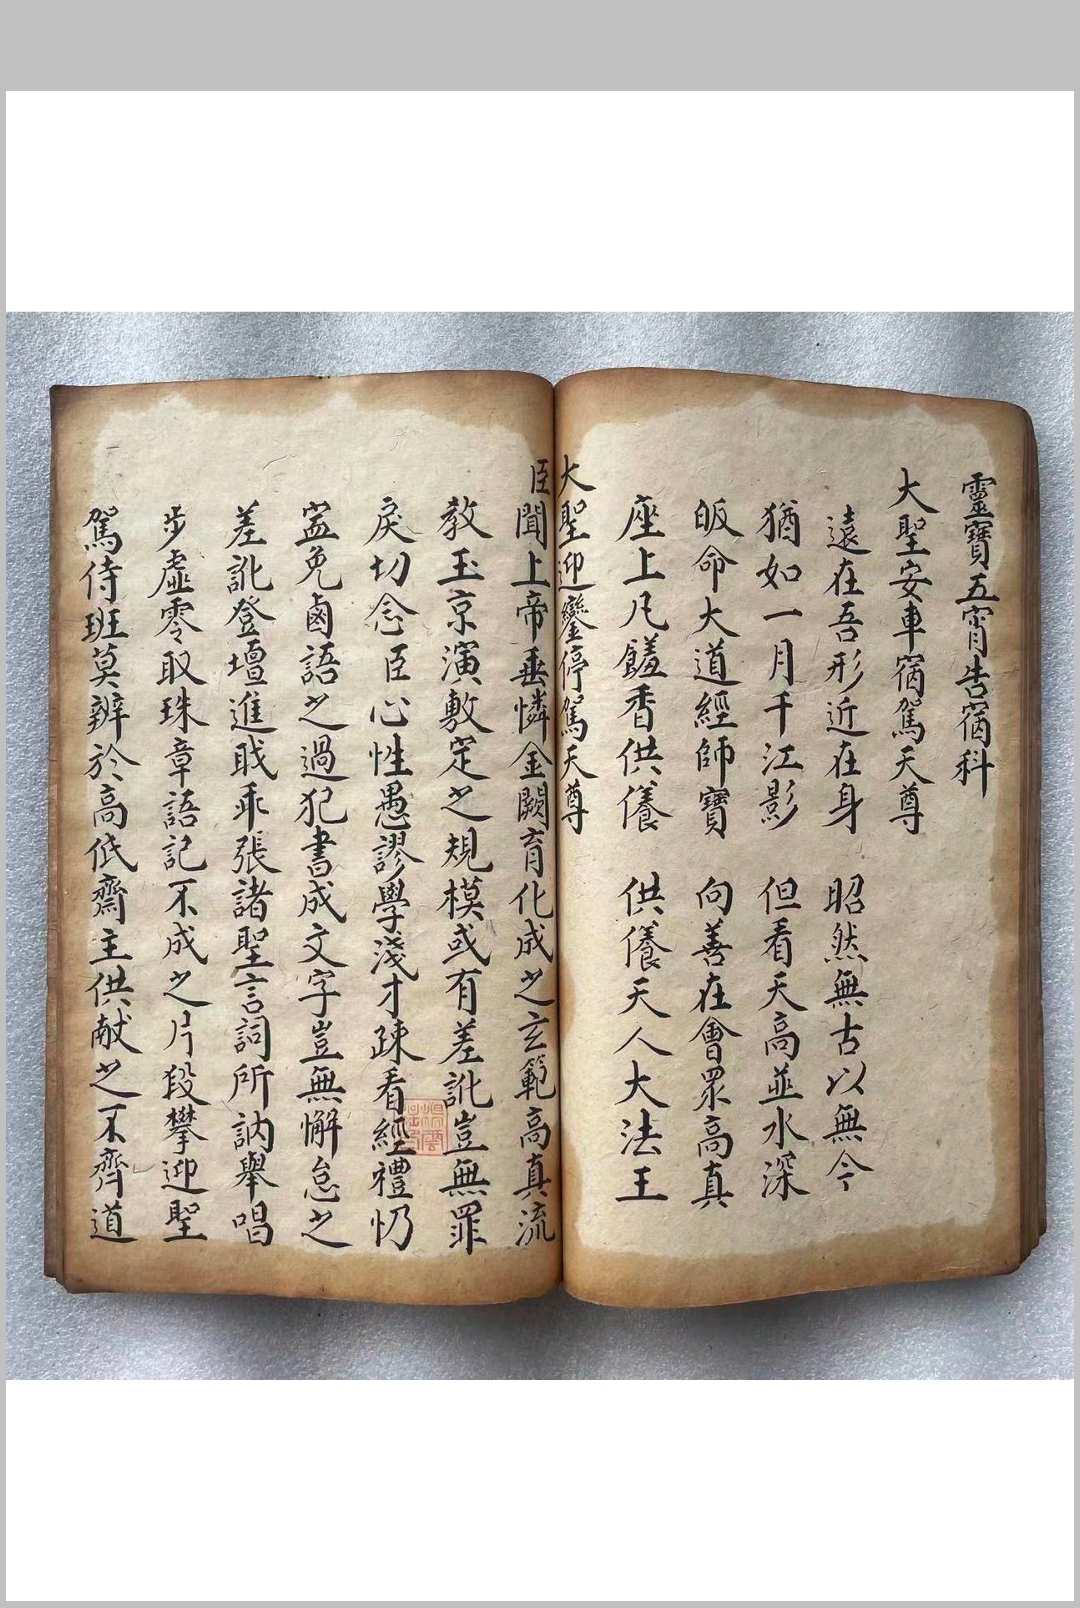 靈寶五宵告宿科
大聖安車宿駕天尊
遠在吾形近在身 昭然無古以無今
猶如一月千江影 但看天高並水深
皈命大道經師寶 向善在會眾高真
座上凡饈香供養 供養天人大法王
大聖迎鑾停駕天尊
臣聞上帝垂憐金闕育化成之玄範高真流
教玉京演敷定之規模或有差訛豈無罪
戾切念臣心性愚謬學淺才疎看經禮懺
盖免鹵語之過犯書成文字豈無懈怠之
差訛登壇進戝乖張諸聖言詞所訥舉唱
步虛零取珠章語記不成之片段攀迎聖
駕侍班莫辨於高低齋主供献之不齊道